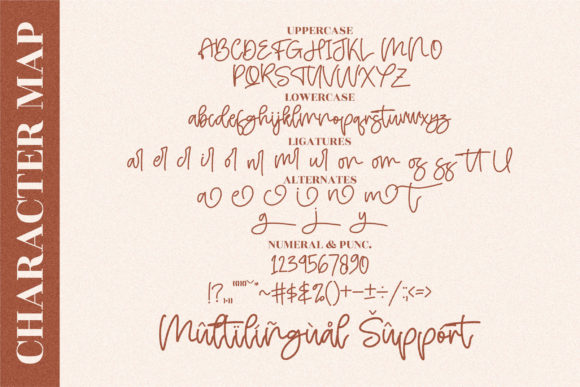 CHARACTER MAP
UPPERCASE
ABCDEFGHIJKL MNO
PQRSTUVWXYZ
LOWERCASE
abcdefghijklmnopqrstuvwxyz
LIGATURES
al el cl il ol nl ml ul on om os ss tt ll
ALTERNATES
a e o i n m t
g j y
NUMERAL & PUNC.
1234567890
!?.,:;""''~*~#$&%()+-±÷/:;<=>
Mûltïlíñgùål Šûppórt